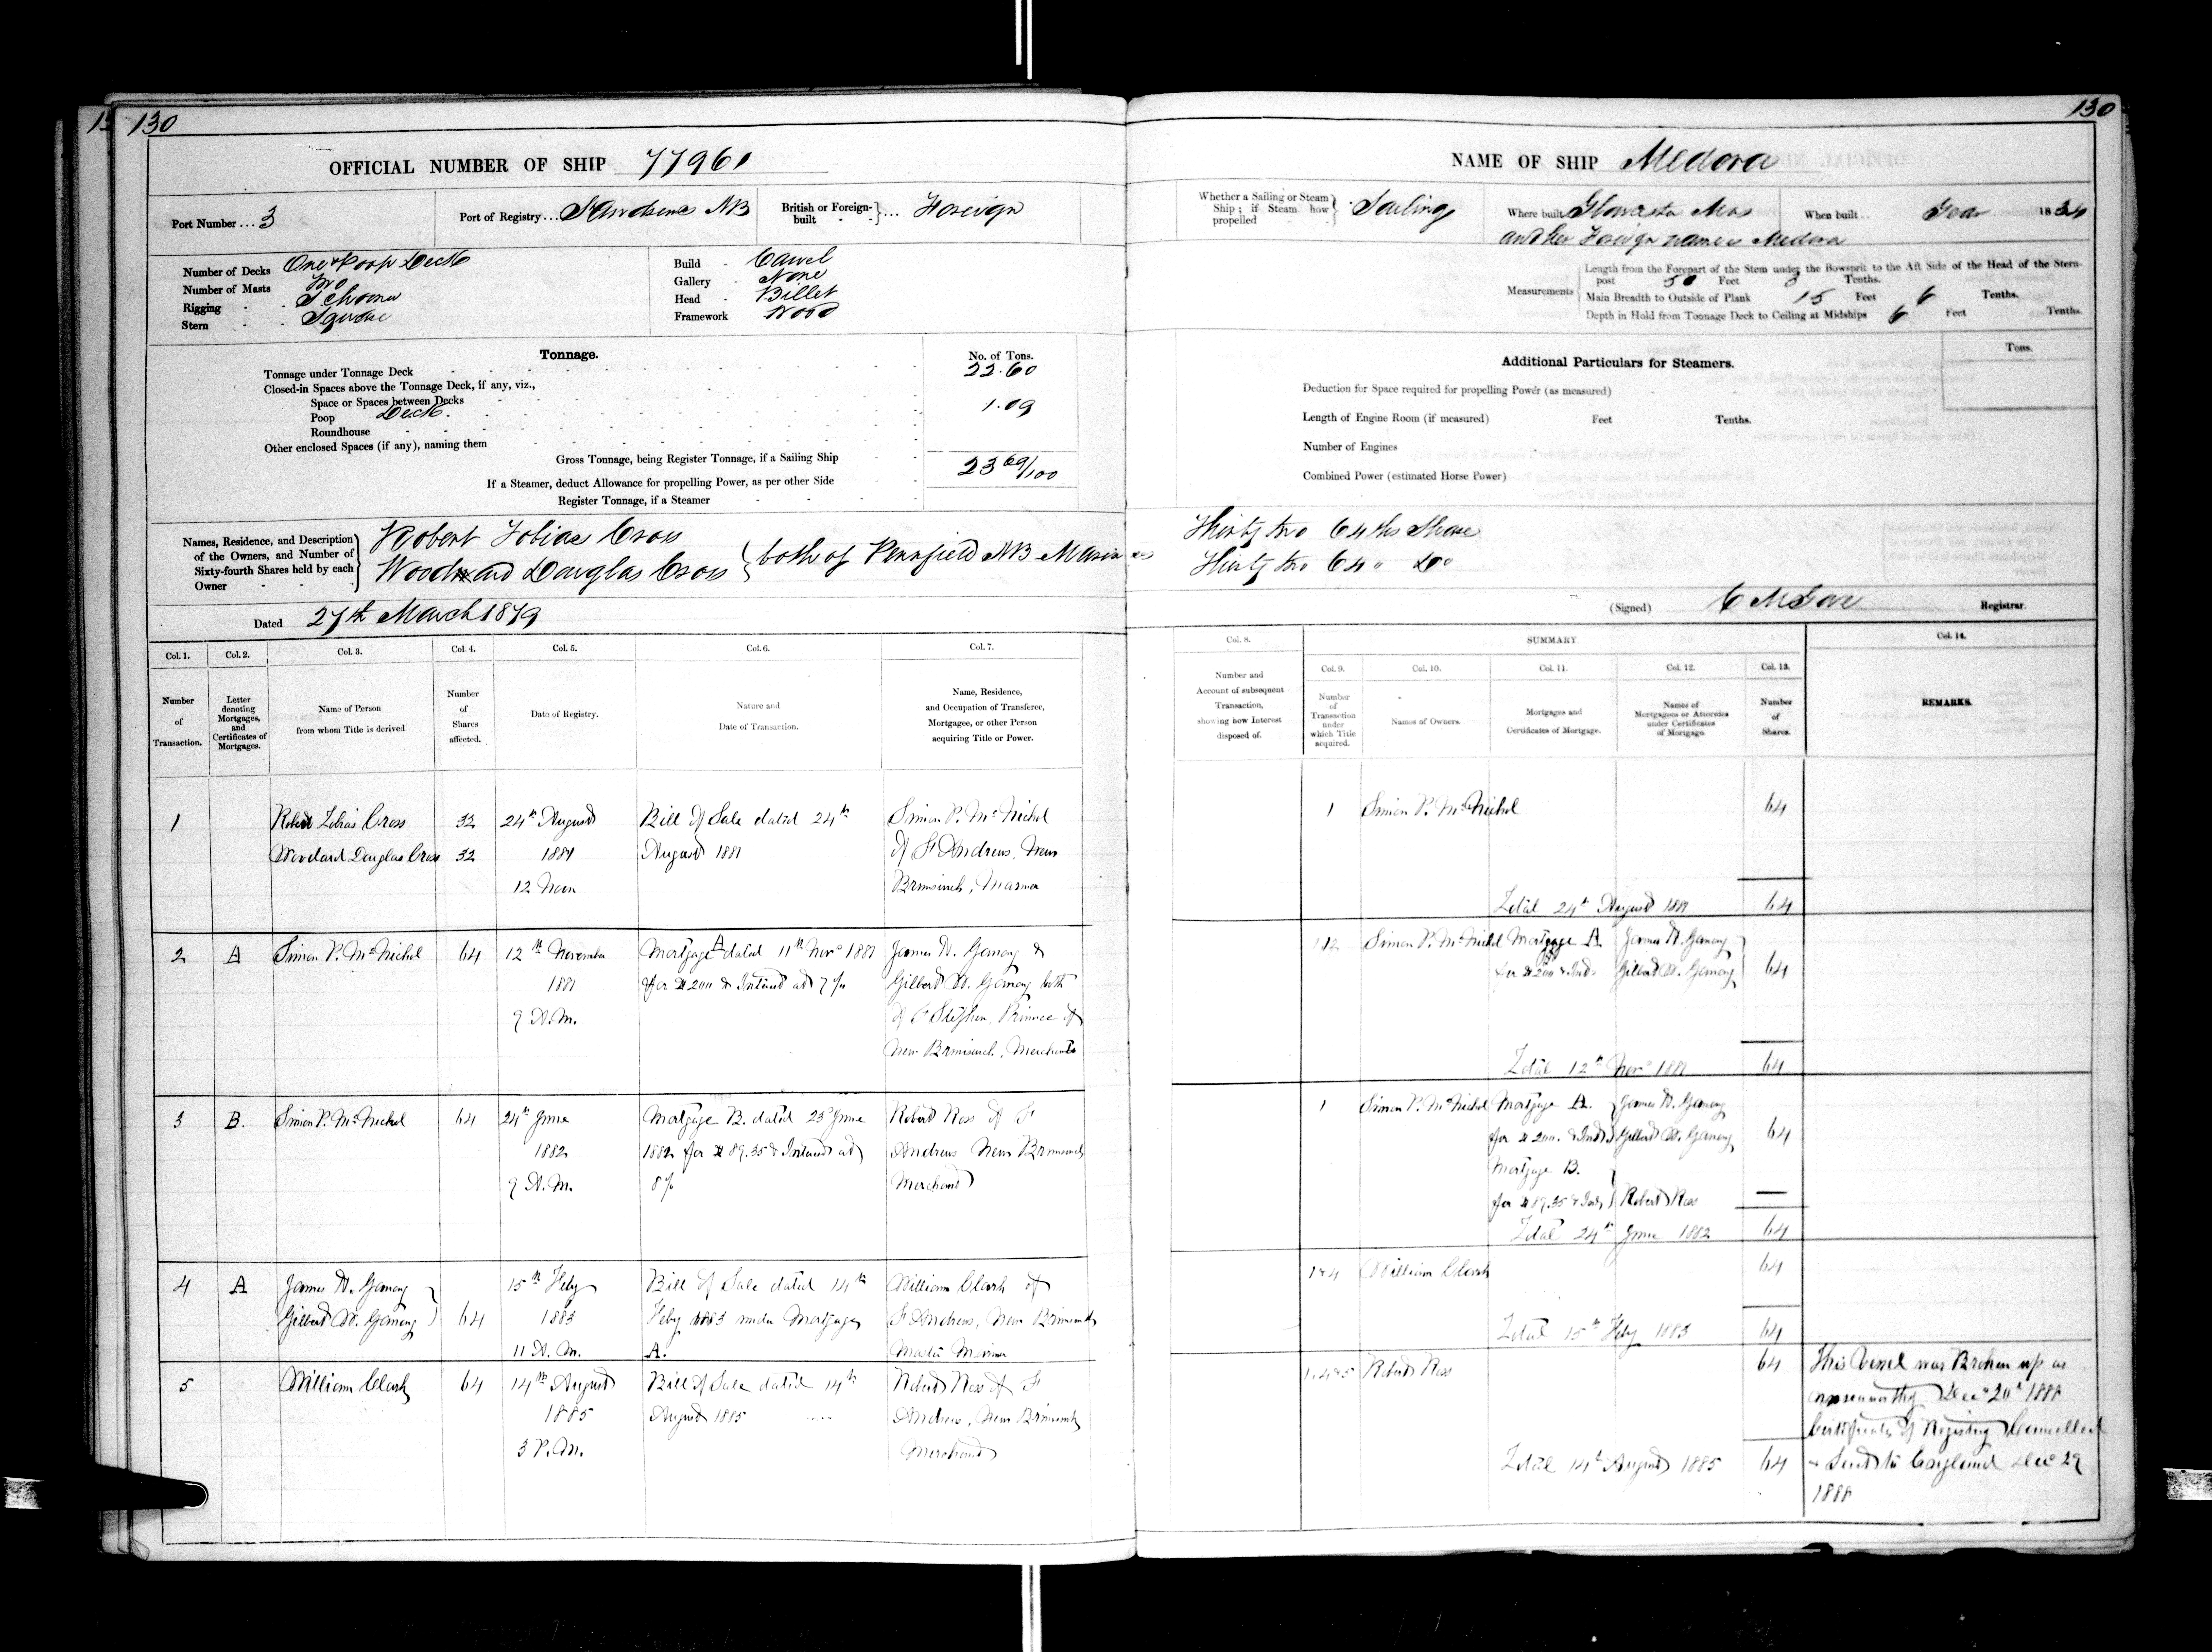 130
OFFICIAL NUMBER OF SHIP 77961
Port Number ... 3
Port of Registry ... St Andrews NB
British or Foreign-built } ... Foreign
Number of Decks One & Poop Deck
Number of Masts Two
Rigging - - Schooner
Stern - - Square
Build - Carvel
Gallery - None
Head - Billet
Framework Wood
Tonnage.
No. of Tons.
Tonnage under Tonnage Deck 22.60
Closed-in Spaces above the Tonnage Deck, if any, viz.,
Space or Spaces between Decks
Poop Deck. 1.09
Roundhouse
Other enclosed Spaces (if any), naming them
Gross Tonnage, being Register Tonnage, if a Sailing Ship 23 69/100
If a Steamer, deduct Allowance for propelling Power, as per other Side
Register Tonnage, if a Steamer
Names, Residence, and Description of the Owners, and Number of Sixty-fourth Shares held by each Owner
Robert Tobias Cross
Woodward Douglas Cross } both of Pennfield NB Mariners
Dated 27th March 1879
Col. 1. Col. 2. Col. 3. Col. 4. Col. 5. Col. 6. Col. 7.
Number of Transaction.
Letter denoting Mortgages, and Certificates of Mortgages.
Name of Person from whom Title is derived
Number of Shares affected.
Date of Registry.
Nature and Date of Transaction.
Name, Residence, and Occupation of Transferee, Mortgagee, or other Person acquiring Title or Power.
1 Robert Tobias Cross 32 24th August Bill of Sale dated 24th Simon P. McNichol
Woodard Douglas Cross 32 1881 August 1881 of St Andrews, New
12 Noon Brunswick, Mariner
2 A Simon P. McNichol 64 12th November Mortgage A dated 11th Novr 1881 James W. Ganong &
1881 for $200 & Interest at 7% Gilbert W. Ganong both
9 A.M. of St Stephen, Province of
New Brunswick, Merchants
3 B. Simon P. McNichol 64 24th June Mortgage B. dated 23d June Robert Ross of St
1882 1882 for $89.35 & Interest at Andrews New Brunswick
9 A.M. 8% Merchant
4 A James W. Ganong 15th Feby Bill of Sale dated 14th William Clark of
Gilbert W. Ganong } 64 1883 Feby 1883 under Mortgage St Andrews, New Brunswick
11 A.M. A. Master Mariner
5 William Clark 64 14th August Bill of Sale dated 14th Robert Ross of St
1885 August 1885 Andrews, New Brunswick
3 P.M. Merchant
130
NAME OF SHIP Medora
Whether a Sailing or Steam Ship; if Steam how propelled } Sailing
Where built Gloucester Mas
and her Foreign name is Medora
When built .. Year 1834
Measurements
Length from the Forepart of the Stem under the Bowsprit to the Aft Side of the Head of the Stern-
post 50 Feet 3 Tenths.
Main Breadth to Outside of Plank 15 Feet 6 Tenths.
Depth in Hold from Tonnage Deck to Ceiling at Midships 6 Feet Tenths.
Additional Particulars for Steamers.
Tons.
Deduction for Space required for propelling Power (as measured)
Length of Engine Room (if measured) Feet Tenths.
Number of Engines
Combined Power (estimated Horse Power)
Thirty two 64ths Share
Thirty two 64 " Do
(Signed) Registrar.
Col. 8.
Number and Account of subsequent Transaction, showing how Interest disposed of.
SUMMARY.
Col. 9. Col. 10. Col. 11. Col. 12. Col. 13. Col. 14.
Number of Transaction under which Title acquired.
Names of Owners.
Mortgages and Certificates of Mortgage.
Names of Mortgagees or Attornies under Certificates of Mortgage.
Number of Shares.
REMARKS.
1 Simon P. McNichol 64
Total 24th August 1881 64
1 & 2 Simon P. McNichol Mortgage A. James W. Ganong
for $200 & Int. Gilbert W. Ganong 64
Total 12th Novr 1881 64
1 Simon P. McNichol Mortgage A. James W. Ganong
for $200. & Int. Gilbert W. Ganong 64
Mortgage B.
for $89.35 & Int. } Robert Ross —
Total 24th June 1882 64
1 & 4 William Clark 64
Total 15th Feby 1883 64
1.4 & 5 Robert Ross 64
Total 14th August 1885 64
This Vessel was Broken up as
unseaworthy Decr 20th 1888
Certificate of Registry Cancelled
& Sent to England Decr 29
1888